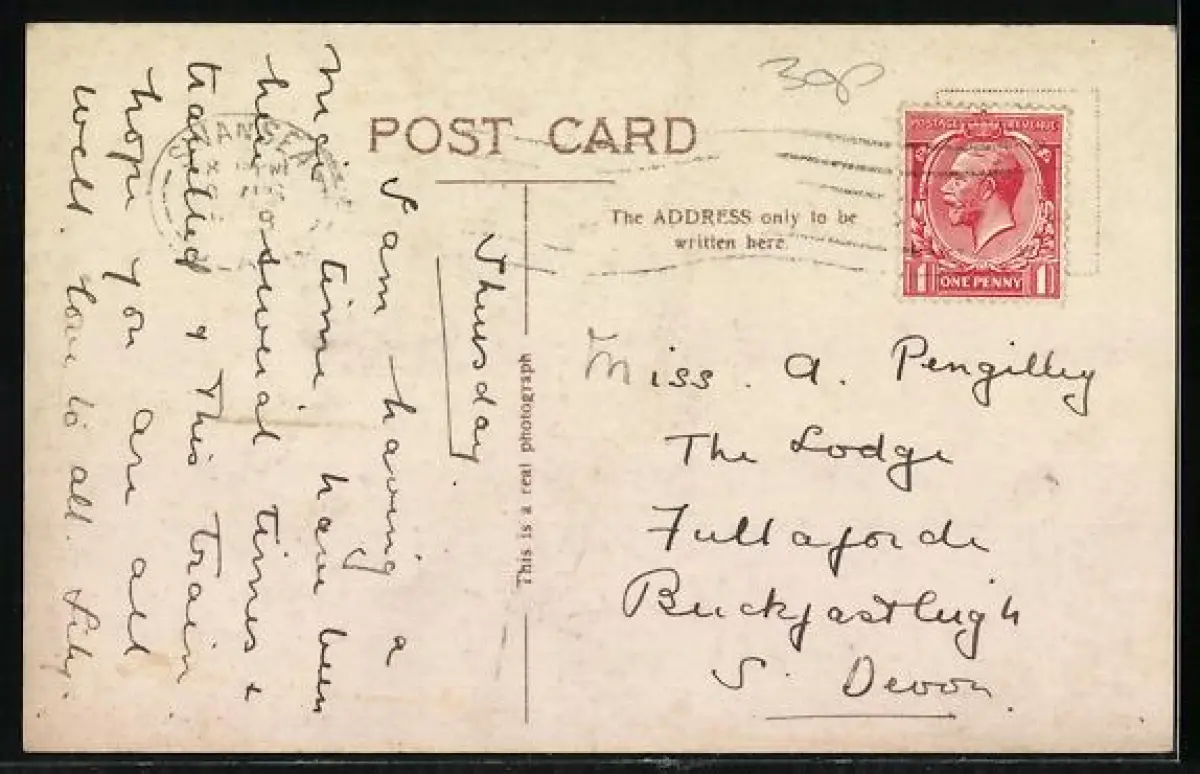 POST CARD
30p
POSTAGE REVENUE
1 ONE PENNY 1
ANSEA
The ADDRESS only to be
written here.
This is a real photograph
Thursday.
I am having a
nice time have been
here several times &
travelled & this train
hope you are all
well. love to all. Lily.
Miss. A. Pengilley
The Lodge
Fullaforde
Buckfastleigh
S. Devon.